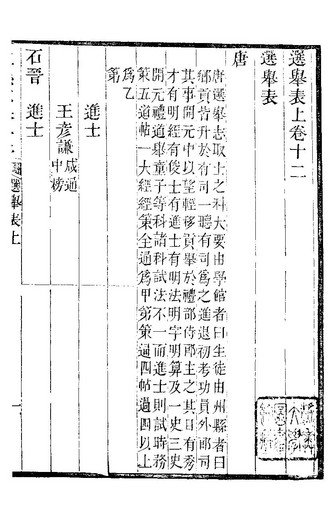 選舉表上卷十二
選舉表
唐
唐選舉志取士之科大要由學館者曰生徒由州縣者曰
鄉貢皆升於有司一聽有司爲之進退初考功員外郎司
其事開元中以望輕移貢舉於禮部侍郎主之其目有秀
才有明經有俊士有進士有明法明字明算及一史三史
開元禮道舉童子等科諸科試法不一而進士則試時務
策五道帖一大經經策全通爲甲第策過四帖過四以上
爲乙第
進士
王彥謙咸通中榜
石晉 進士
選舉表上
一